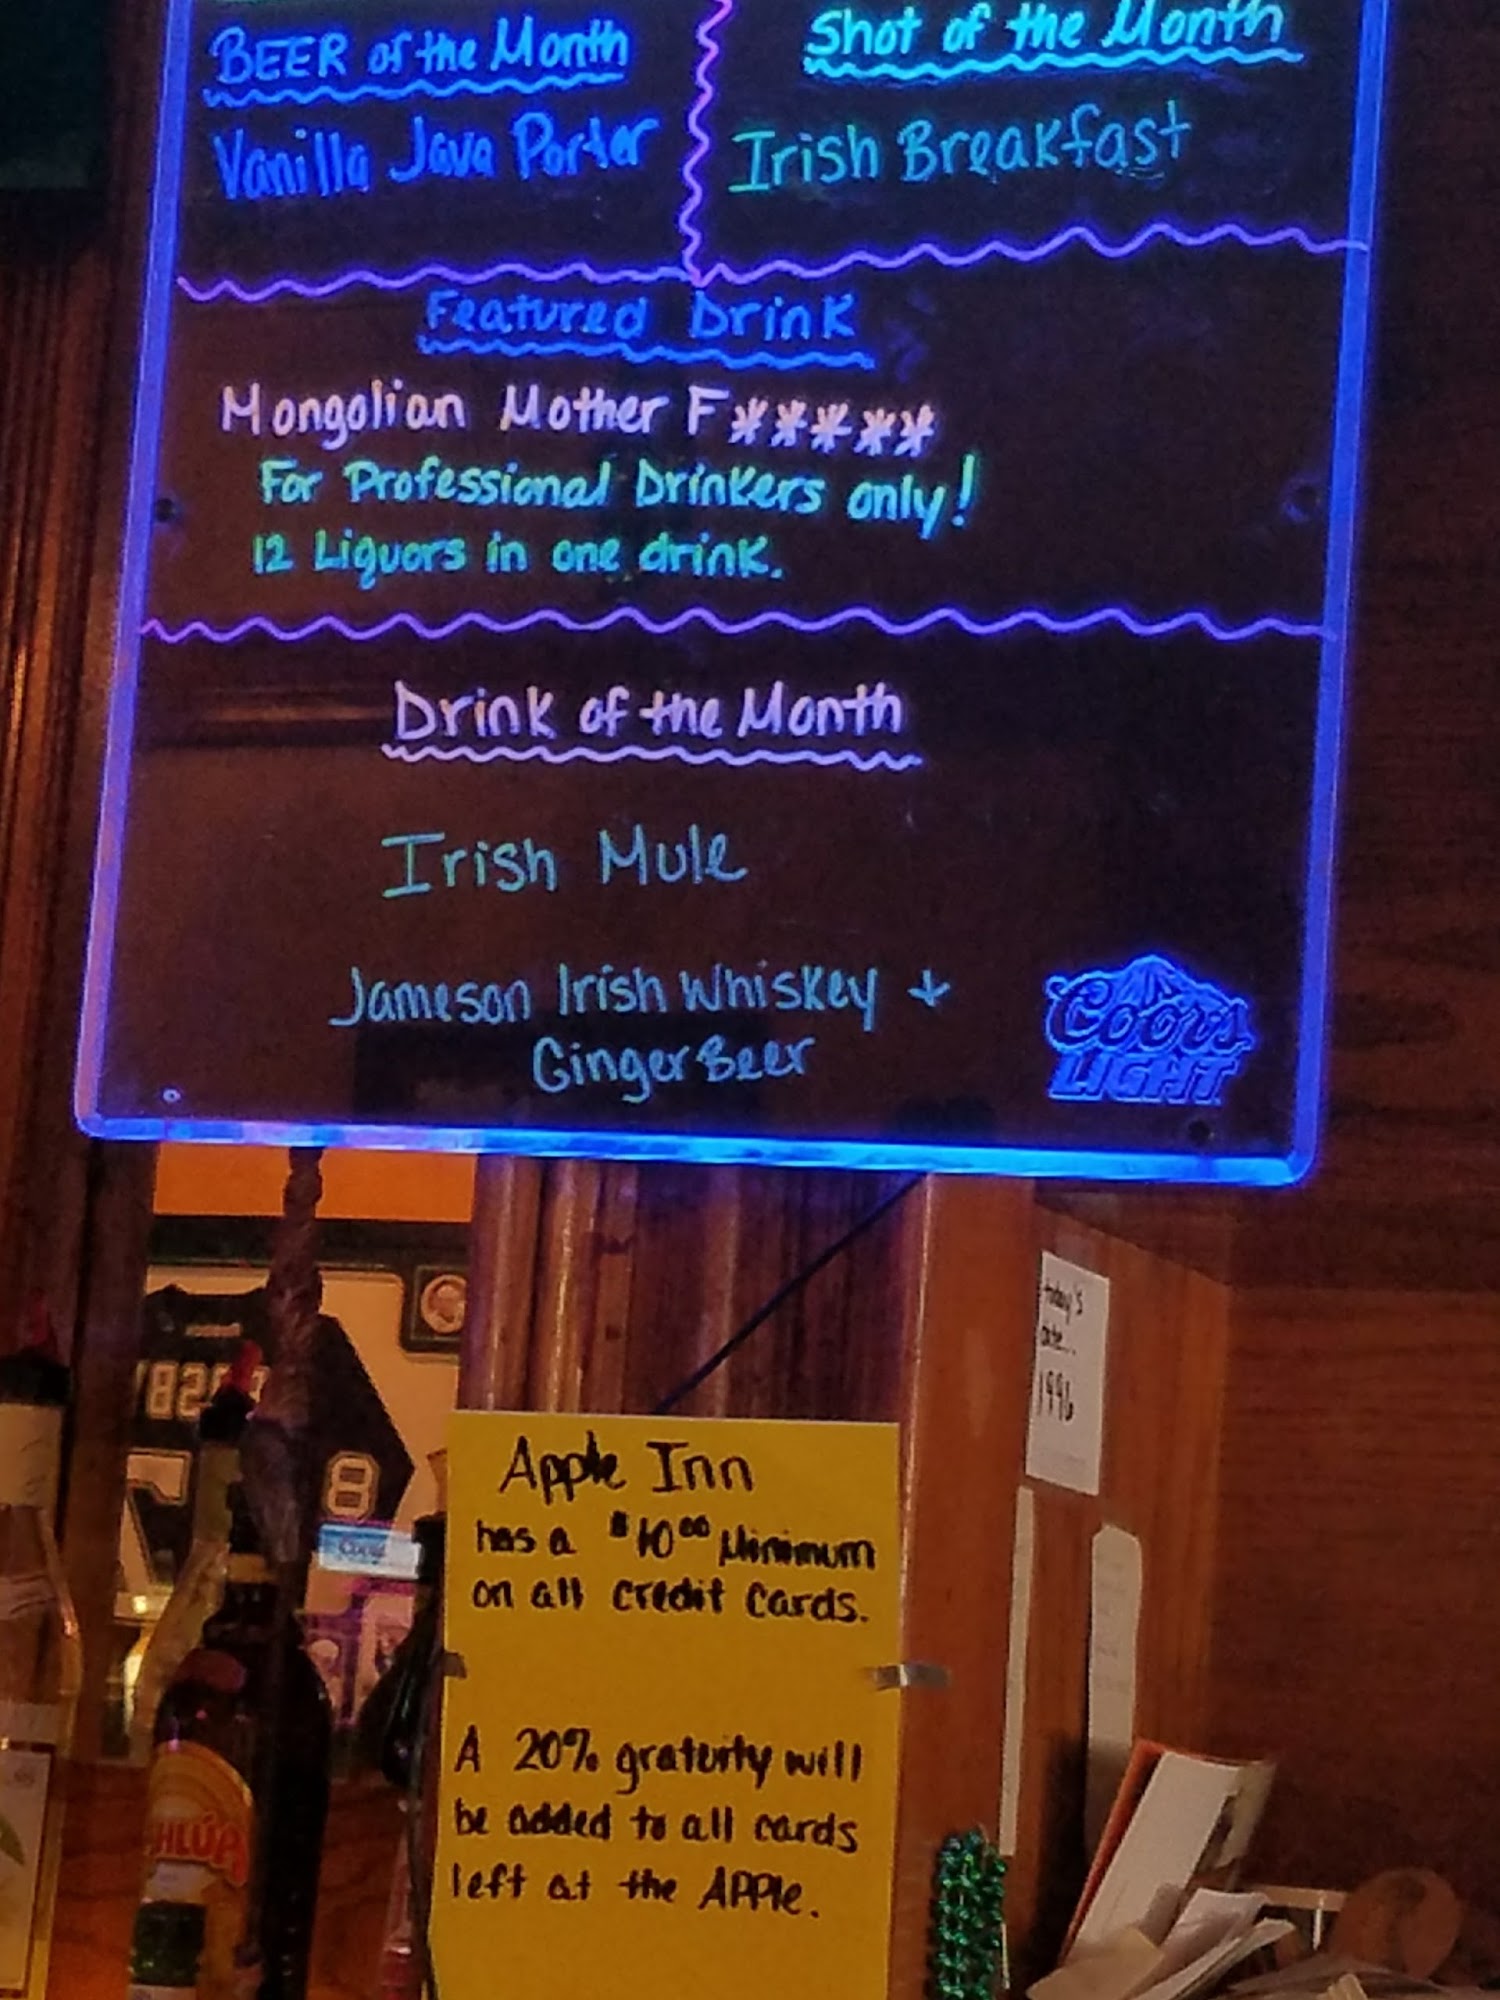 BEER of the Month
Vanilla Java Porter
Shot of the Month
Irish Breakfast
Featured Drink
Mongolian Mother F*****
For Professional Drinkers only!
12 Liquors in one drink.
Drink of the Month
Irish Mule
Jameson Irish Whiskey +
Ginger Beer
Coors
LIGHT
today's
date...
1996
8
Coors
Apple Inn
has a $10.00 Minimum
on all credit cards.
A 20% gratuity will
be added to all cards
left at the Apple.